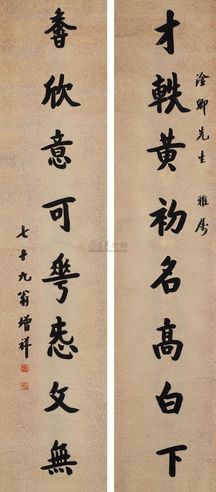 淦卿先生 雅属
才軼黄初名高白下
欣意可文無
七十九翁增祥